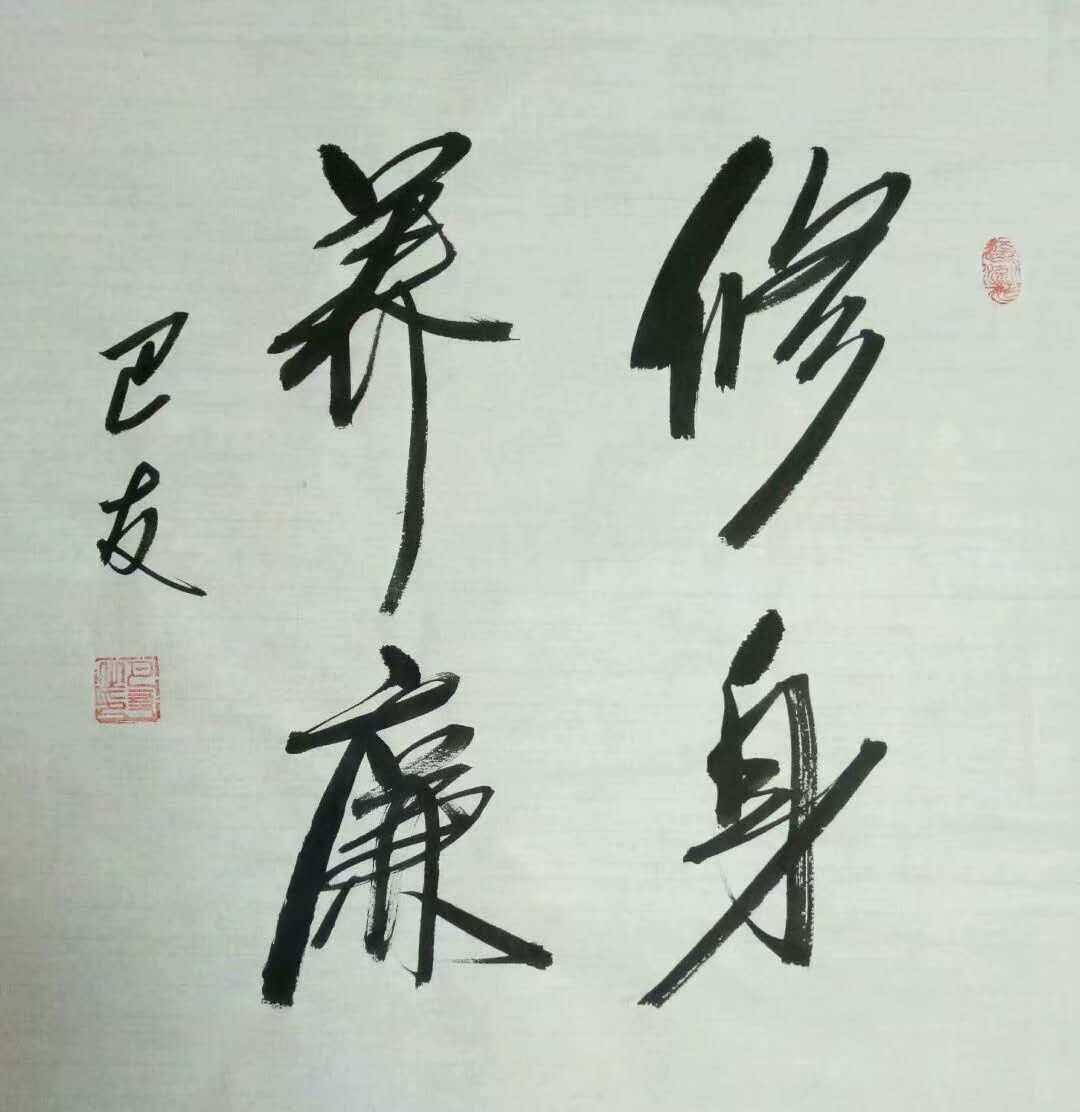 修身
养廉
巴友